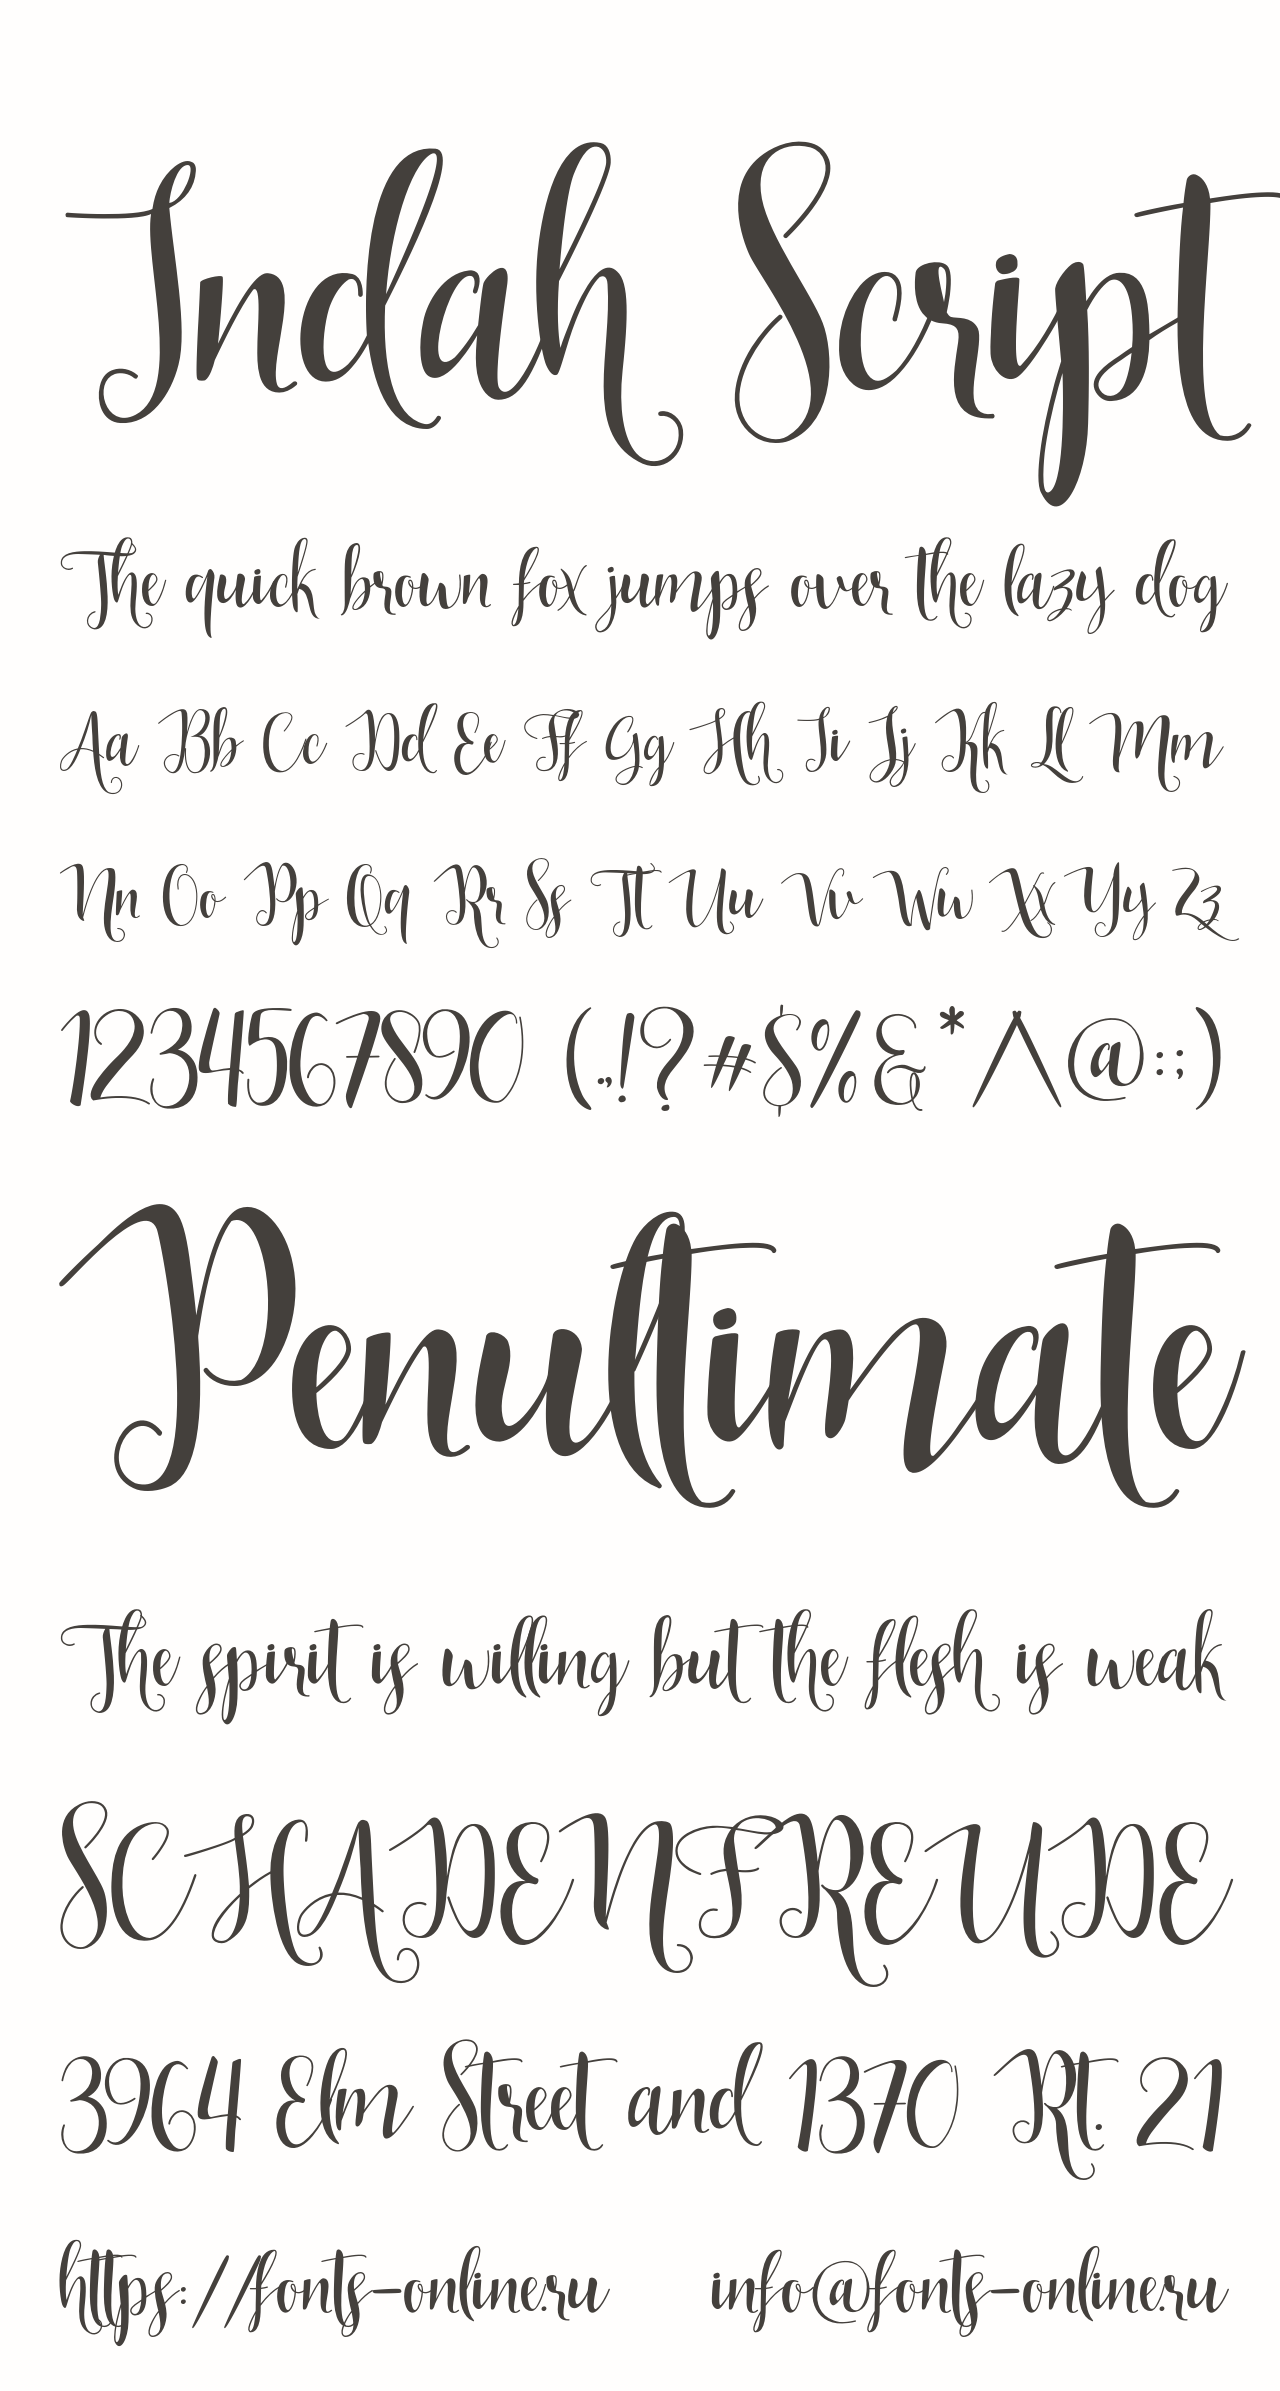 Indah Script
The quick brown fox jumps over the lazy dog
Aa Bb Cc Dd Ee Ff Gg Hh Ii Jj Kk Ll Mm
Nn Oo Pp Qq Rr Ss Tt Uu Vv Ww Xx Yy Zz
1234567890 (.,!?#$%&*/\@:;)
Penultimate
The spirit is willing but the flesh is weak
SCHADENFREUDE
3964 Elm Street and 1370 Rt. 21
https://fonts-online.ru info@fonts-online.ru